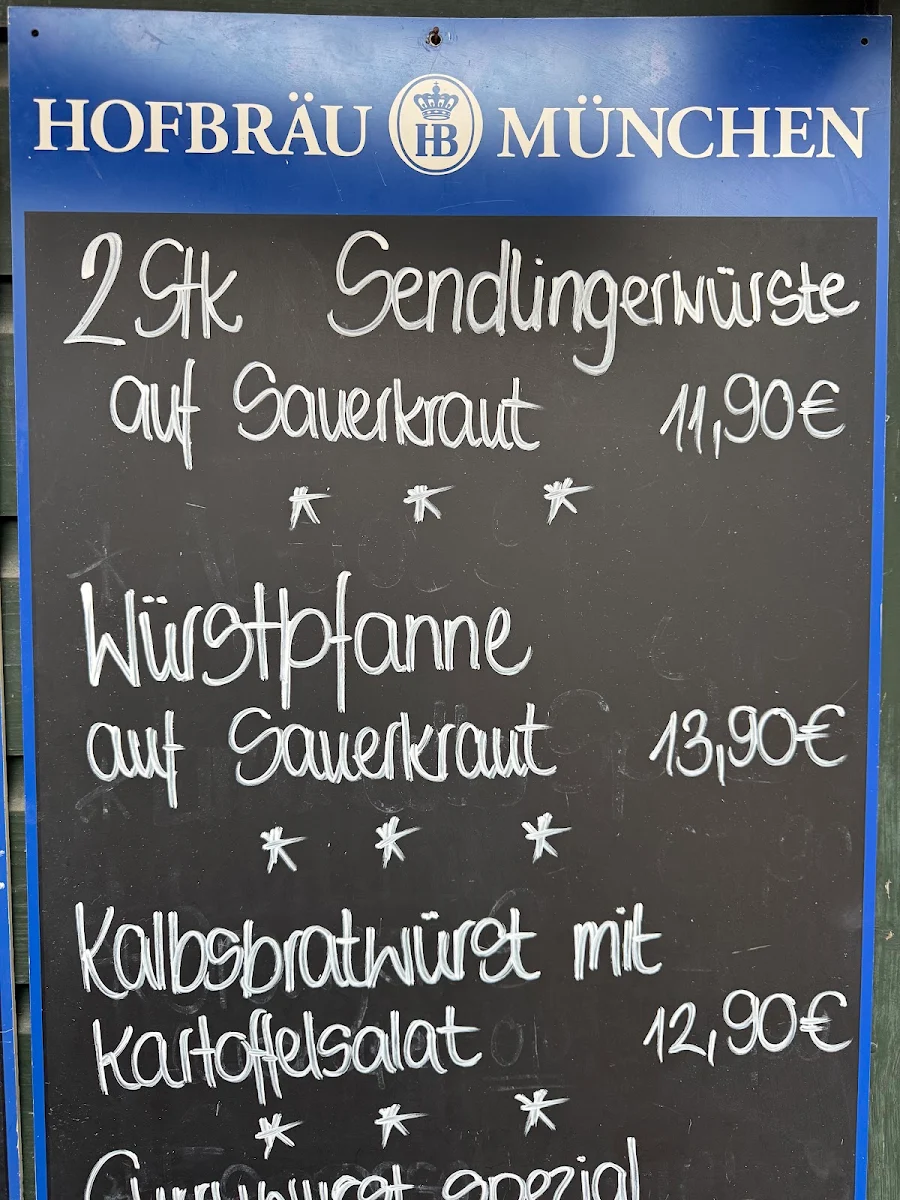 HOFBRÄU HB MÜNCHEN
2 Stk Sendlingerwürste
auf Sauerkraut 11,90€
* * *
Würstpfanne
auf Sauerkraut 13,90€
* * *
Kalbsbratwürst mit
Kartoffelsalat 12,90€
* * *
Currywurst spezial